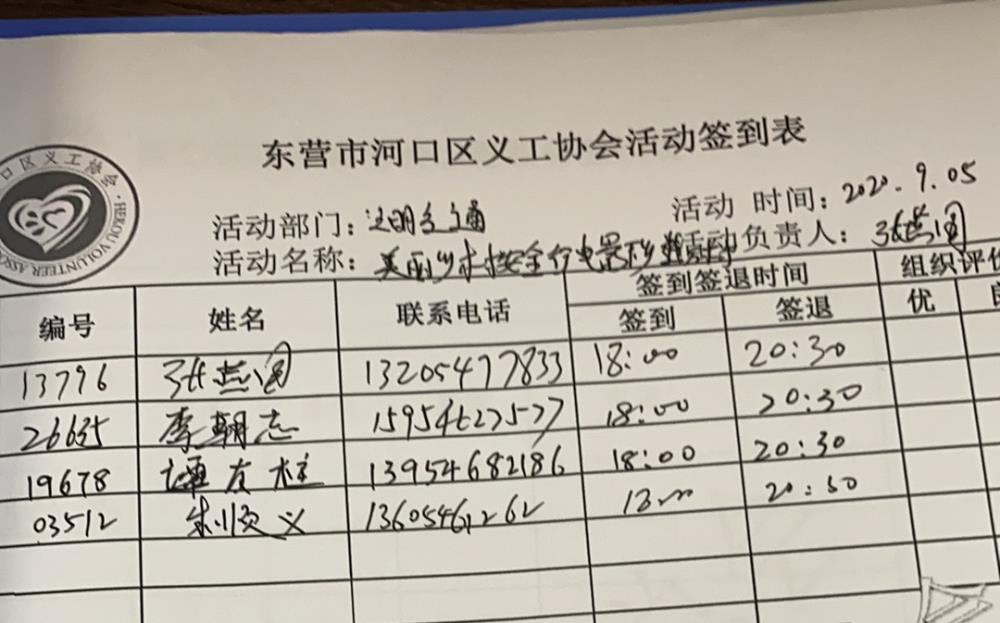 东营市河口区义工协会活动签到表
口区义工协会·HEKOU VOLUNTEER ASSO
活动部门：文明交通 活动 时间：2020.9.05
活动名称：美丽乡村安全行电影下乡 活动负责人：张兰阁
编号 姓名 联系电话 签到签退时间 组织评价
签到 签退 优 良
13796 张兰阁 13205477833 18:00 20:30
26635 李朝志 15954627577 18:00 20:30
19678 谭友柱 13954682186 18:00 20:30
03512 朱顺义 13605461262 20:30